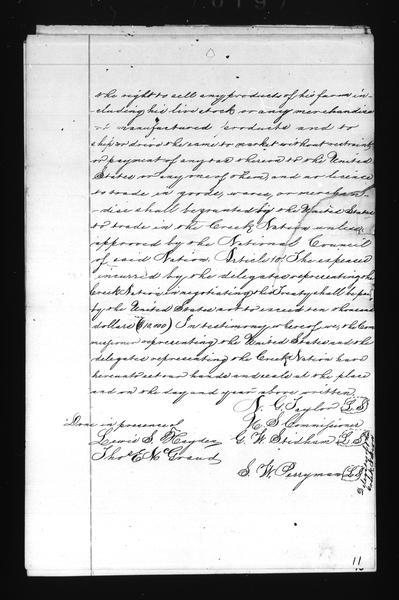 the right to sell any products of his farm in-
cluding his live stock or any merchandise
or manufactured products and to
ship or drive the same to market without restraint
or payment of any tax thereon to the United
States or any one of them and no license
to trade in goods, wares, or merchan-
-dise shall be granted by the United States
to trade in the Creek Nation unless
approved by the National Council
of said Nation. Article 10. The expenses
incurred by the delegates representing the
Creek Nation in negotiating this Treaty shall be paid
by the United States not to exceed ten thousand
dollars ($10,000) In testimony whereof we, the Com
missioner representing the United States and the
delegates representing the Creek Nation have
hereunto set our hands and seals at the place
and on the day and year above written.
N. G. Taylor L.S.
Done in presence of U. S. Commissioner
Lewis S. Hayden G. W. Stidham L.S.
Thos E McGraud
S. W. Perryman L.S.
11